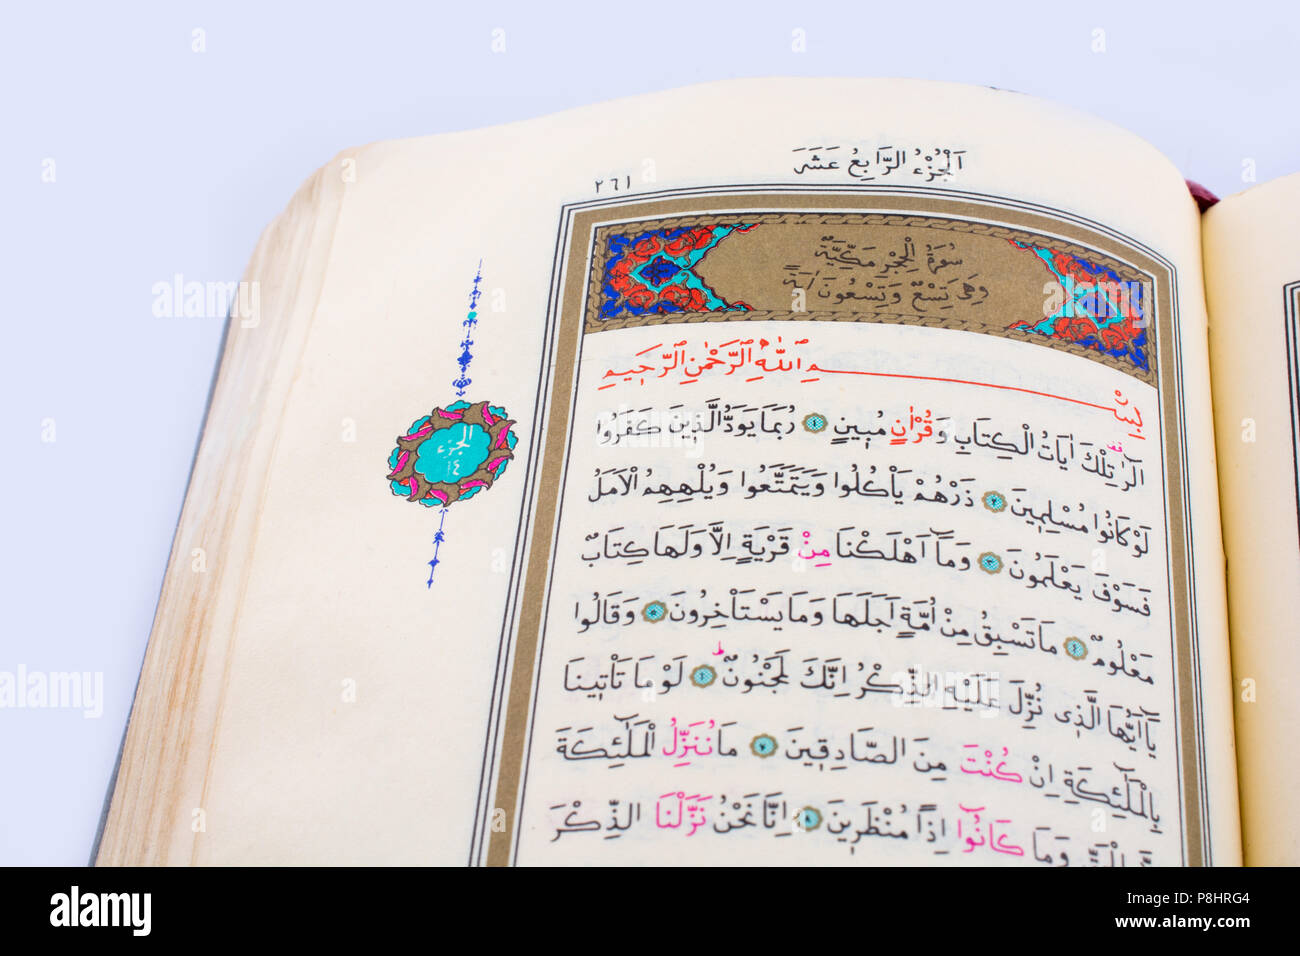 اَلْجُزْءُ الرَّابِعُ عَشَرَ
٢٦١
سُورَةُ الْحِجْرِ مَكِّيَّةٌ
وَهِيَ تِسْعٌ وَتِسْعُونَ اٰيَةً
بِسْمِ اللّٰهِ الرَّحْمٰنِ الرَّحِيمِ
الٓرٰ تِلْكَ اٰيَاتُ الْكِتَابِ وَقُرْاٰنٍ مُبِينٍ ١ رُبَمَا يَوَدُّ الَّذِينَ كَفَرُوا
لَوْ كَانُوا مُسْلِمِينَ ٢ ذَرْهُمْ يَأْكُلُوا وَيَتَمَتَّعُوا وَيُلْهِهِمُ الْاَمَلُ
فَسَوْفَ يَعْلَمُونَ ٣ وَمَٓا اَهْلَكْنَا مِنْ قَرْيَةٍ اِلَّا وَلَهَا كِتَابٌ
مَعْلُومٌ ٤ مَا تَسْبِقُ مِنْ اُمَّةٍ اَجَلَهَا وَمَا يَسْتَأْخِرُونَ ٥ وَقَالُوا
يَٓا اَيُّهَا الَّذِى نُزِّلَ عَلَيْهِ الذِّكْرُ اِنَّكَ لَمَجْنُونٌ ٦ لَوْ مَا تَأْتِينَا
بِالْمَلٰٓئِكَةِ اِنْ كُنْتَ مِنَ الصَّادِقِينَ ٧ مَا نُنَزِّلُ الْمَلٰٓئِكَةَ
وَمَا كَانُٓوا اِذًا مُنْظَرِينَ ٨ اِنَّا نَحْنُ نَزَّلْنَا الذِّكْرَ
الجزء
١٤
alamy
Image ID: P8HRG4
www.alamy.com